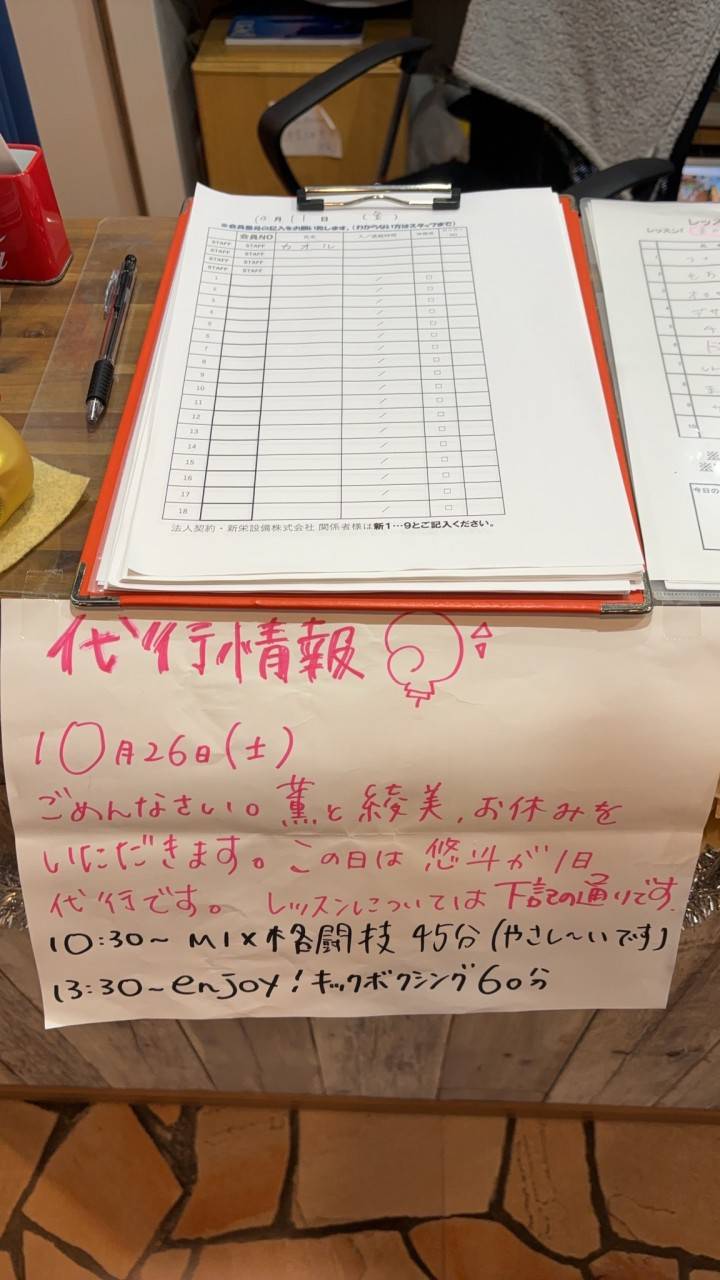 月 11日 (金)
※会員番号の記入をお願い致します。(わからない方はスタッフまで)
会員NO 氏名
STAFF STAFF カオル
STAFF STAFF
STAFF STAFF
STAFF STAFF
1 / □
2 / □
3 / □
4 / □
5 / □
6 / □
7 / □
8 / □
9 / □
10 / □
11 / □
12 / □
13 / □
14 / □
15 / □
16 / □
17 / □
18 / □
法人契約・新栄設備株式会社 関係者様は新1…9とご記入ください。
レッスン!
今日の
代行情報
10月26日(土)
ごめんなさい。薫と綾美、お休みを
いただきます。この日は悠斗が1日
代行です。レッスンについては下記の通りです。
10:30~ MIX格闘技 45分(やさし~いです)
13:30~enjoy!キックボクシング60分